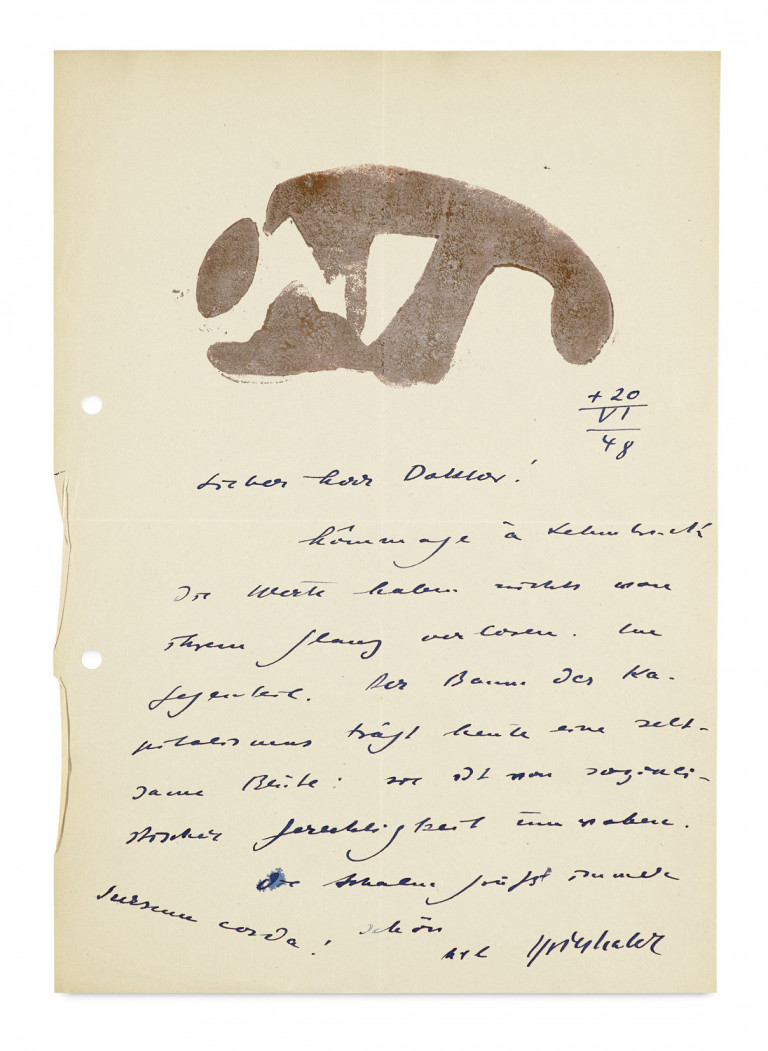 +20
VI
48
Lieber Herr Doktor!
hômmage à Lehmbruck
Die Werke haben nichts von
ihrem Glanz verloren. Im
Gegenteil. Der Baum des Ka-
pitalismus trägt heute eine selt-
same Blüte: sie ist von soziali-
stischer Gerechtigkeit umwoben.
Die grüßt immer
sursum corda! schön